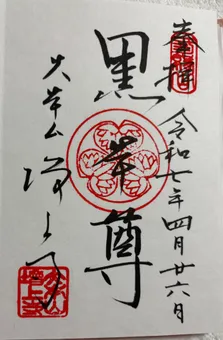 奉拝
令和七年四月廿六日
黒本尊
大本山増上寺